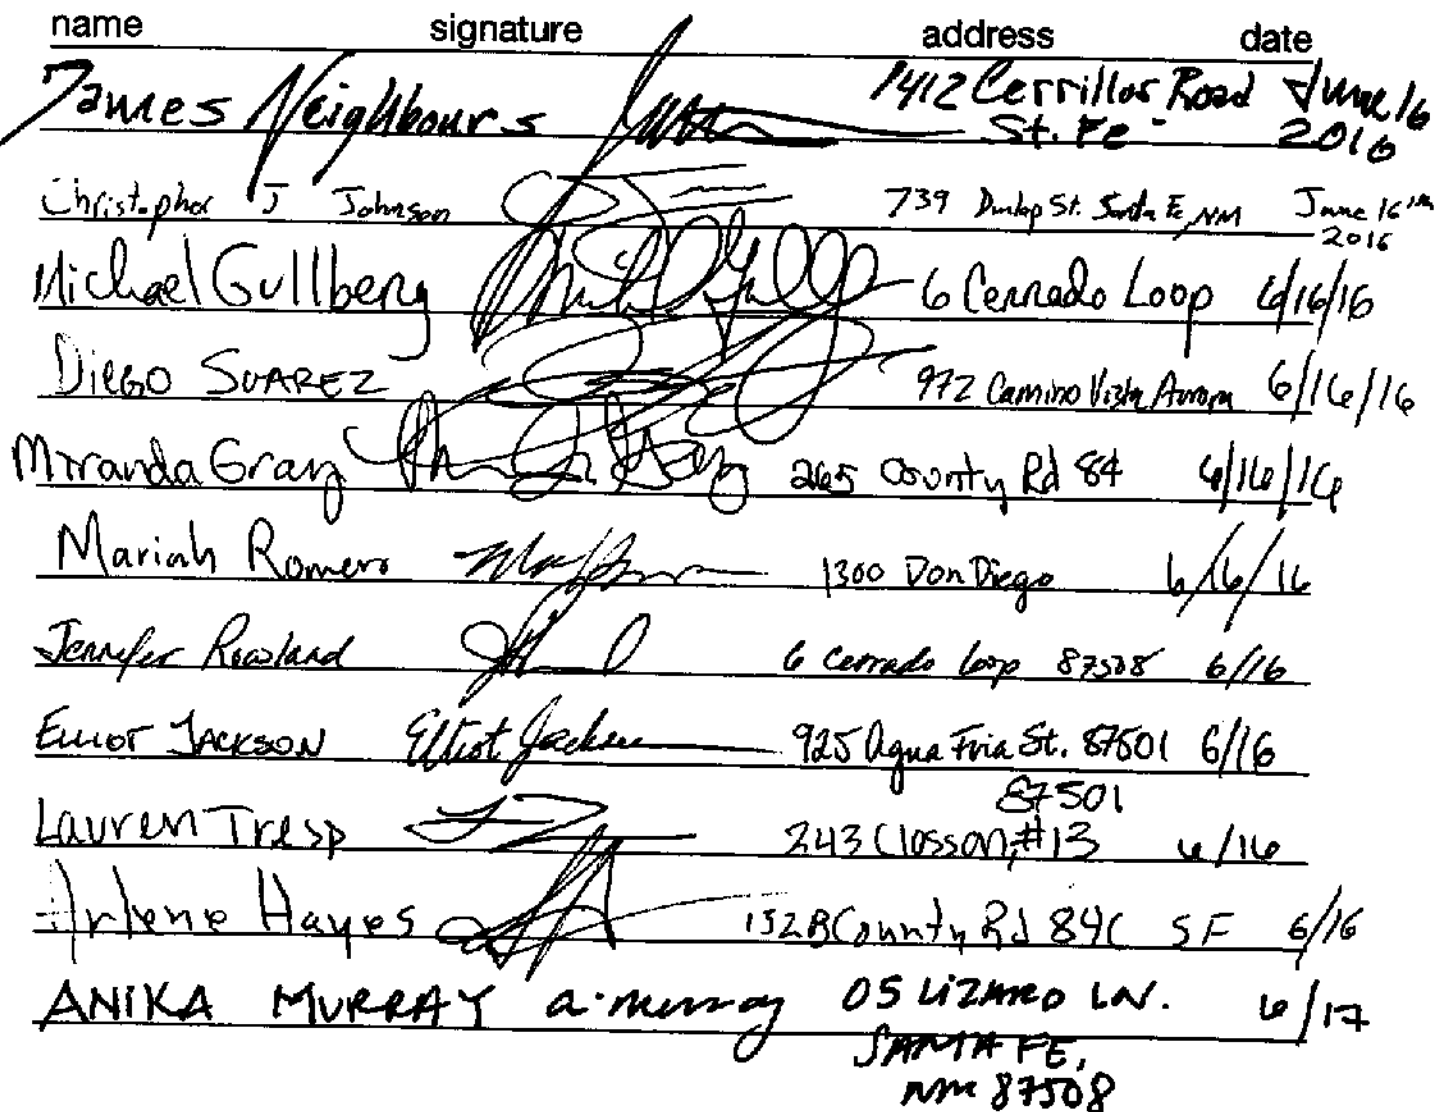 name signature address date
James Neighbours 1412 Cerrillos Road June 16
St. Fe 2016
Christopher J Johnson 739 Dunlap St. Santa Fe, NM June 16th
2016
Michael Gullberg 6 Cerrado Loop 6/16/16
Diego SUAREZ 972 Camino Vista Aurora 6/16/16
Miranda Gray 265 County Rd 84 6/16/16
Mariah Romero 1300 Don Diego 6/16/16
Jennifer Rowland 6 Cerrado Loop 87508 6/16
Elliot Jackson Elliot Jackson 925 Agua Fria St. 87501 6/16
87501
Lauren Tresp 243 Closson, #13 6/16
Arlene Hayes 152B County Rd 84C SF 6/16
ANIKA MURRAY a. murray 05 LIZARD LN. 6/17
SANTA FE,
NM 87508